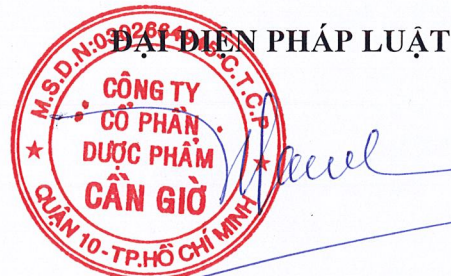 ĐẠI DIỆN PHÁP LUẬT
CÔNG TY
CỔ PHẦN
DƯỢC PHẨM
CẦN GIỜ
QUẬN 10 - TP.HỒ CHÍ MINH